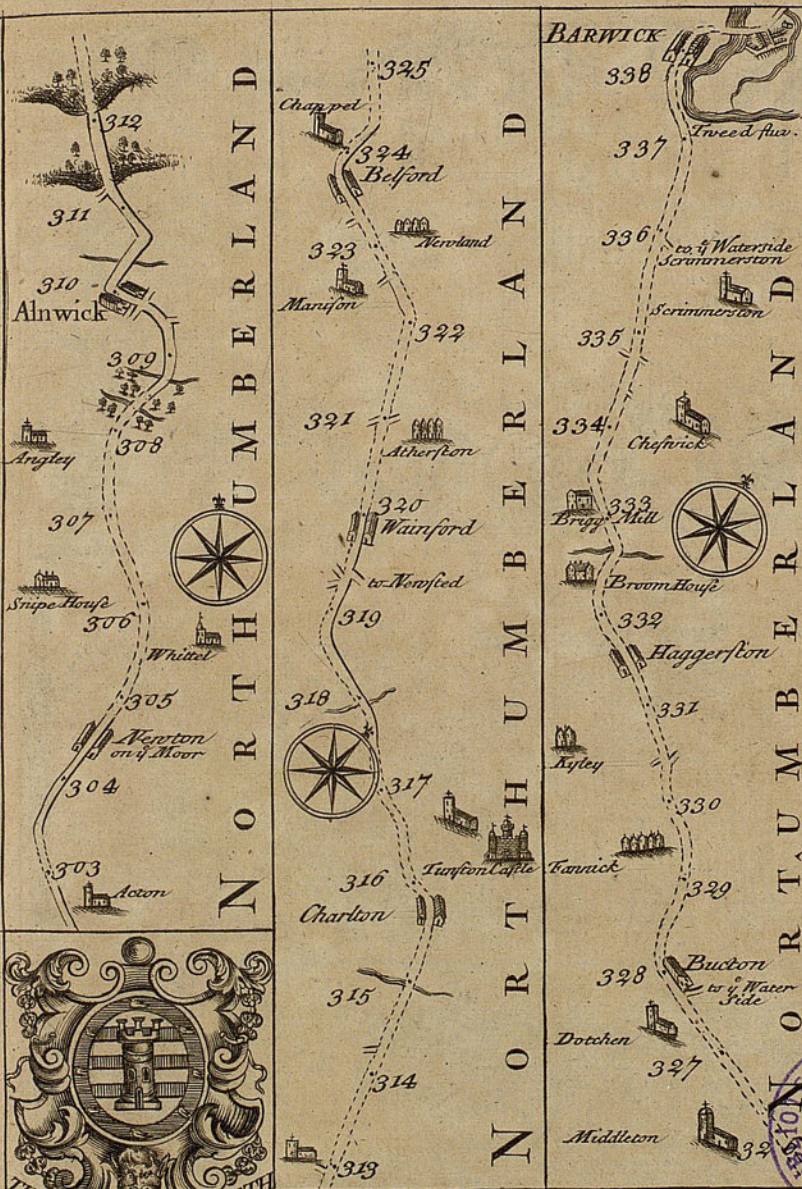 312
311
310
Alnwick
309
308
Angley
307
Snipe House
306
Whittel
305
Newton
on yͤ Moor
304
303
Acton
NORTHUMBERLAND
325
Chappel
324
Belford
Newland
323
Manison
322
321
Atherston
320
Wainford
to Newsted
319
318
317
Tunston Castle
316
Charlton
315
314
313
NORTHUMBERLAND
BARWICK
338
Tweed flux.
337
336
to yͤ Waterside
Scrimmerston
Scrimmerston
335
334
Cheswick
333
Brigg Mill
Broom House
332
Haggerston
331
Kyley
330
Fannick
329
Bucton
328
to yͤ Water
Side
Dotchen
327
Middleton
32
NORTUMBERLAND